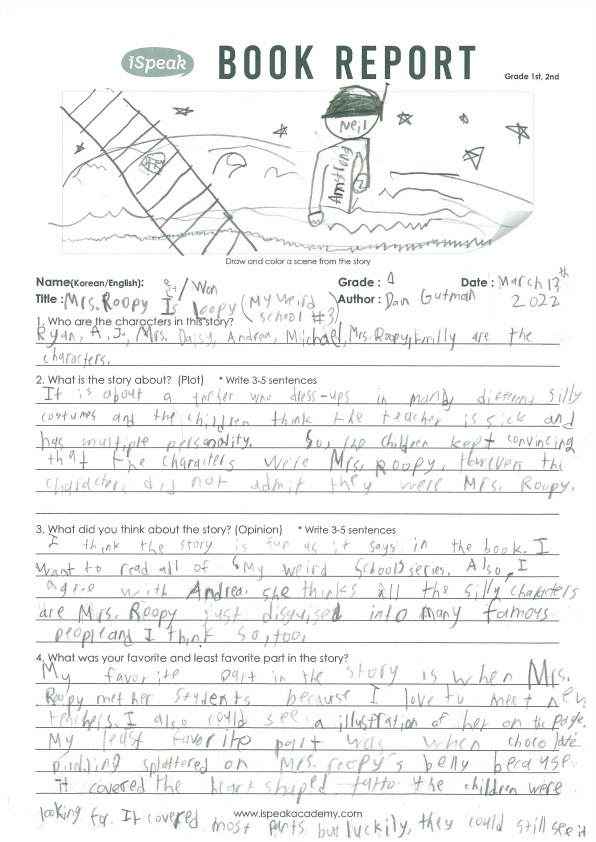 iSpeak BOOK REPORT
Grade 1st, 2nd
Neil
Draw and color a scene from the story
Name(Korean/English): / Won Grade : 1 Date : March 13th
Title : Mrs. Roopy Is Loopy (My Weird School #3) Author : Dan Gutman 2022
1. Who are the characters in this story?
Ryan, A.J, Mrs. Daisy, Andrea, Michael, Mrs. Roopy, Emilly are the
characters.
2. What is the story about? (Plot) * Write 3-5 sentences
It is about a teacher who dress-ups in many different silly
costumes and the children think the teacher is sick and
has multiple personality. So, the children kept convincing
that the characters were Mrs. Roopy. However the
characters did not admit they were Mrs. Roopy.
3. What did you think about the story? (Opinion) * Write 3-5 sentences
I think the story is fun as it says in the book. I
want to read all of "My weird School" series. Also, I
agree with Andrea. she thinks all the silly characters
are Mrs. Roopy just disguised into many famous
people and I think so, too.
4. What was your favorite and least favorite part in the story?
My favorite part in the story is when Mrs.
Roopy met her students because I love to meet new
teachers. I also could see a illustration of her on the page.
My least favorite part was when choco late
pudding splattered on Mrs. roopy's belly because
it covered the heart shaped tatto the children were
looking for. It covered most parts but luckily, they could still see it
www.ispeakacademy.com